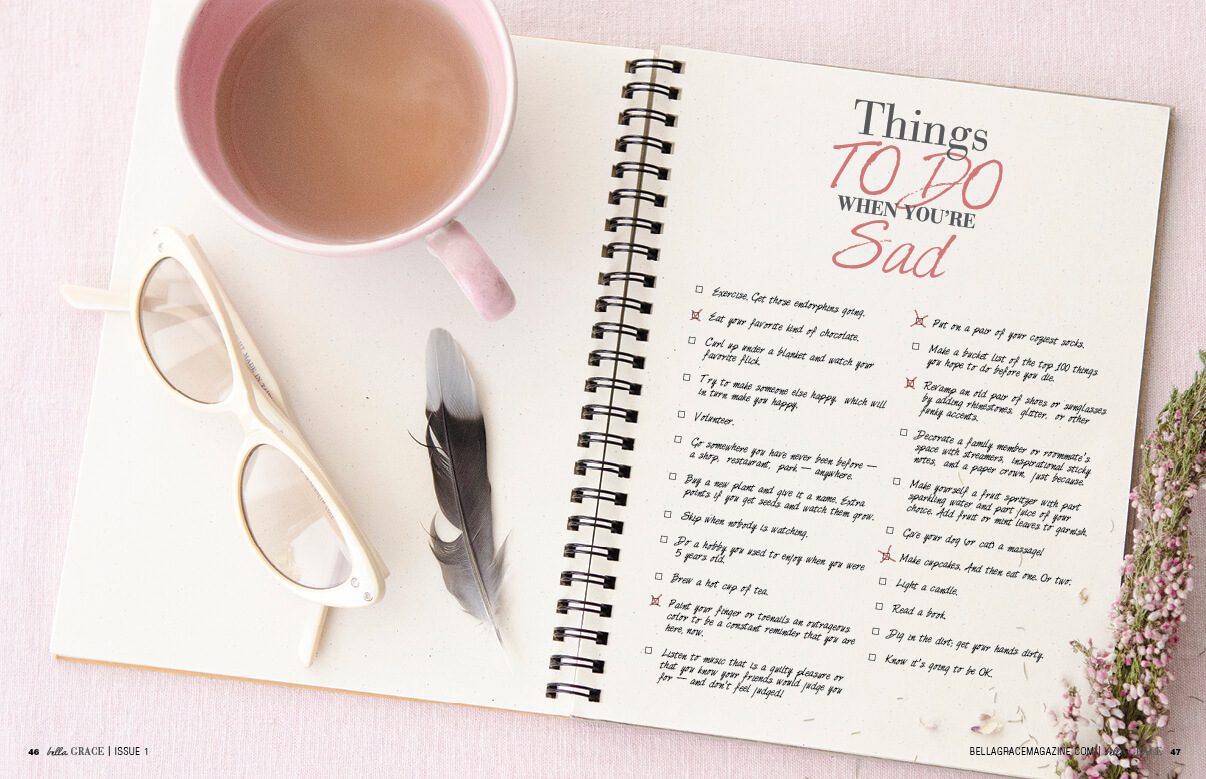 Things
TO DO
WHEN YOU'RE
Sad
Exercise. Get those endorphins going.
Eat your favorite kind of chocolate.
Curl up under a blanket and watch your
favorite flick.
Try to make someone else happy, which will
in turn make you happy.
Volunteer.
Go somewhere you have never been before —
a shop, restaurant, park — anywhere.
Buy a new plant and give it a name. Extra
points if you get seeds and watch them grow.
Skip when nobody is watching.
Do a hobby you used to enjoy when you were
5 years old.
Brew a hot cup of tea.
Paint your finger or toenails an outrageous
color to be a constant reminder that you are
here, now.
Listen to music that is a guilty pleasure or
that you know your friends would judge you
for — and don't feel judged!
Put on a pair of your coziest socks.
Make a bucket list of the top 100 things
you hope to do before you die.
Revamp an old pair of shoes or sunglasses
by adding rhinestones, glitter, or other
funky accents.
Decorate a family member or roommate's
space with streamers, inspirational sticky
notes, and a paper crown, just because.
Make yourself a fruit spritzer with part
sparkling water and part juice of your
choice. Add fruit or mint leaves to garnish.
Give your dog (or cat) a massage!
Make cupcakes. And then eat one. Or two.
Light a candle.
Read a book.
Dig in the dirt; get your hands dirty.
Know it's going to be OK.
46 bella GRACE | ISSUE 1
BELLAGRACEMAGAZINE.COM | bella GRACE 47